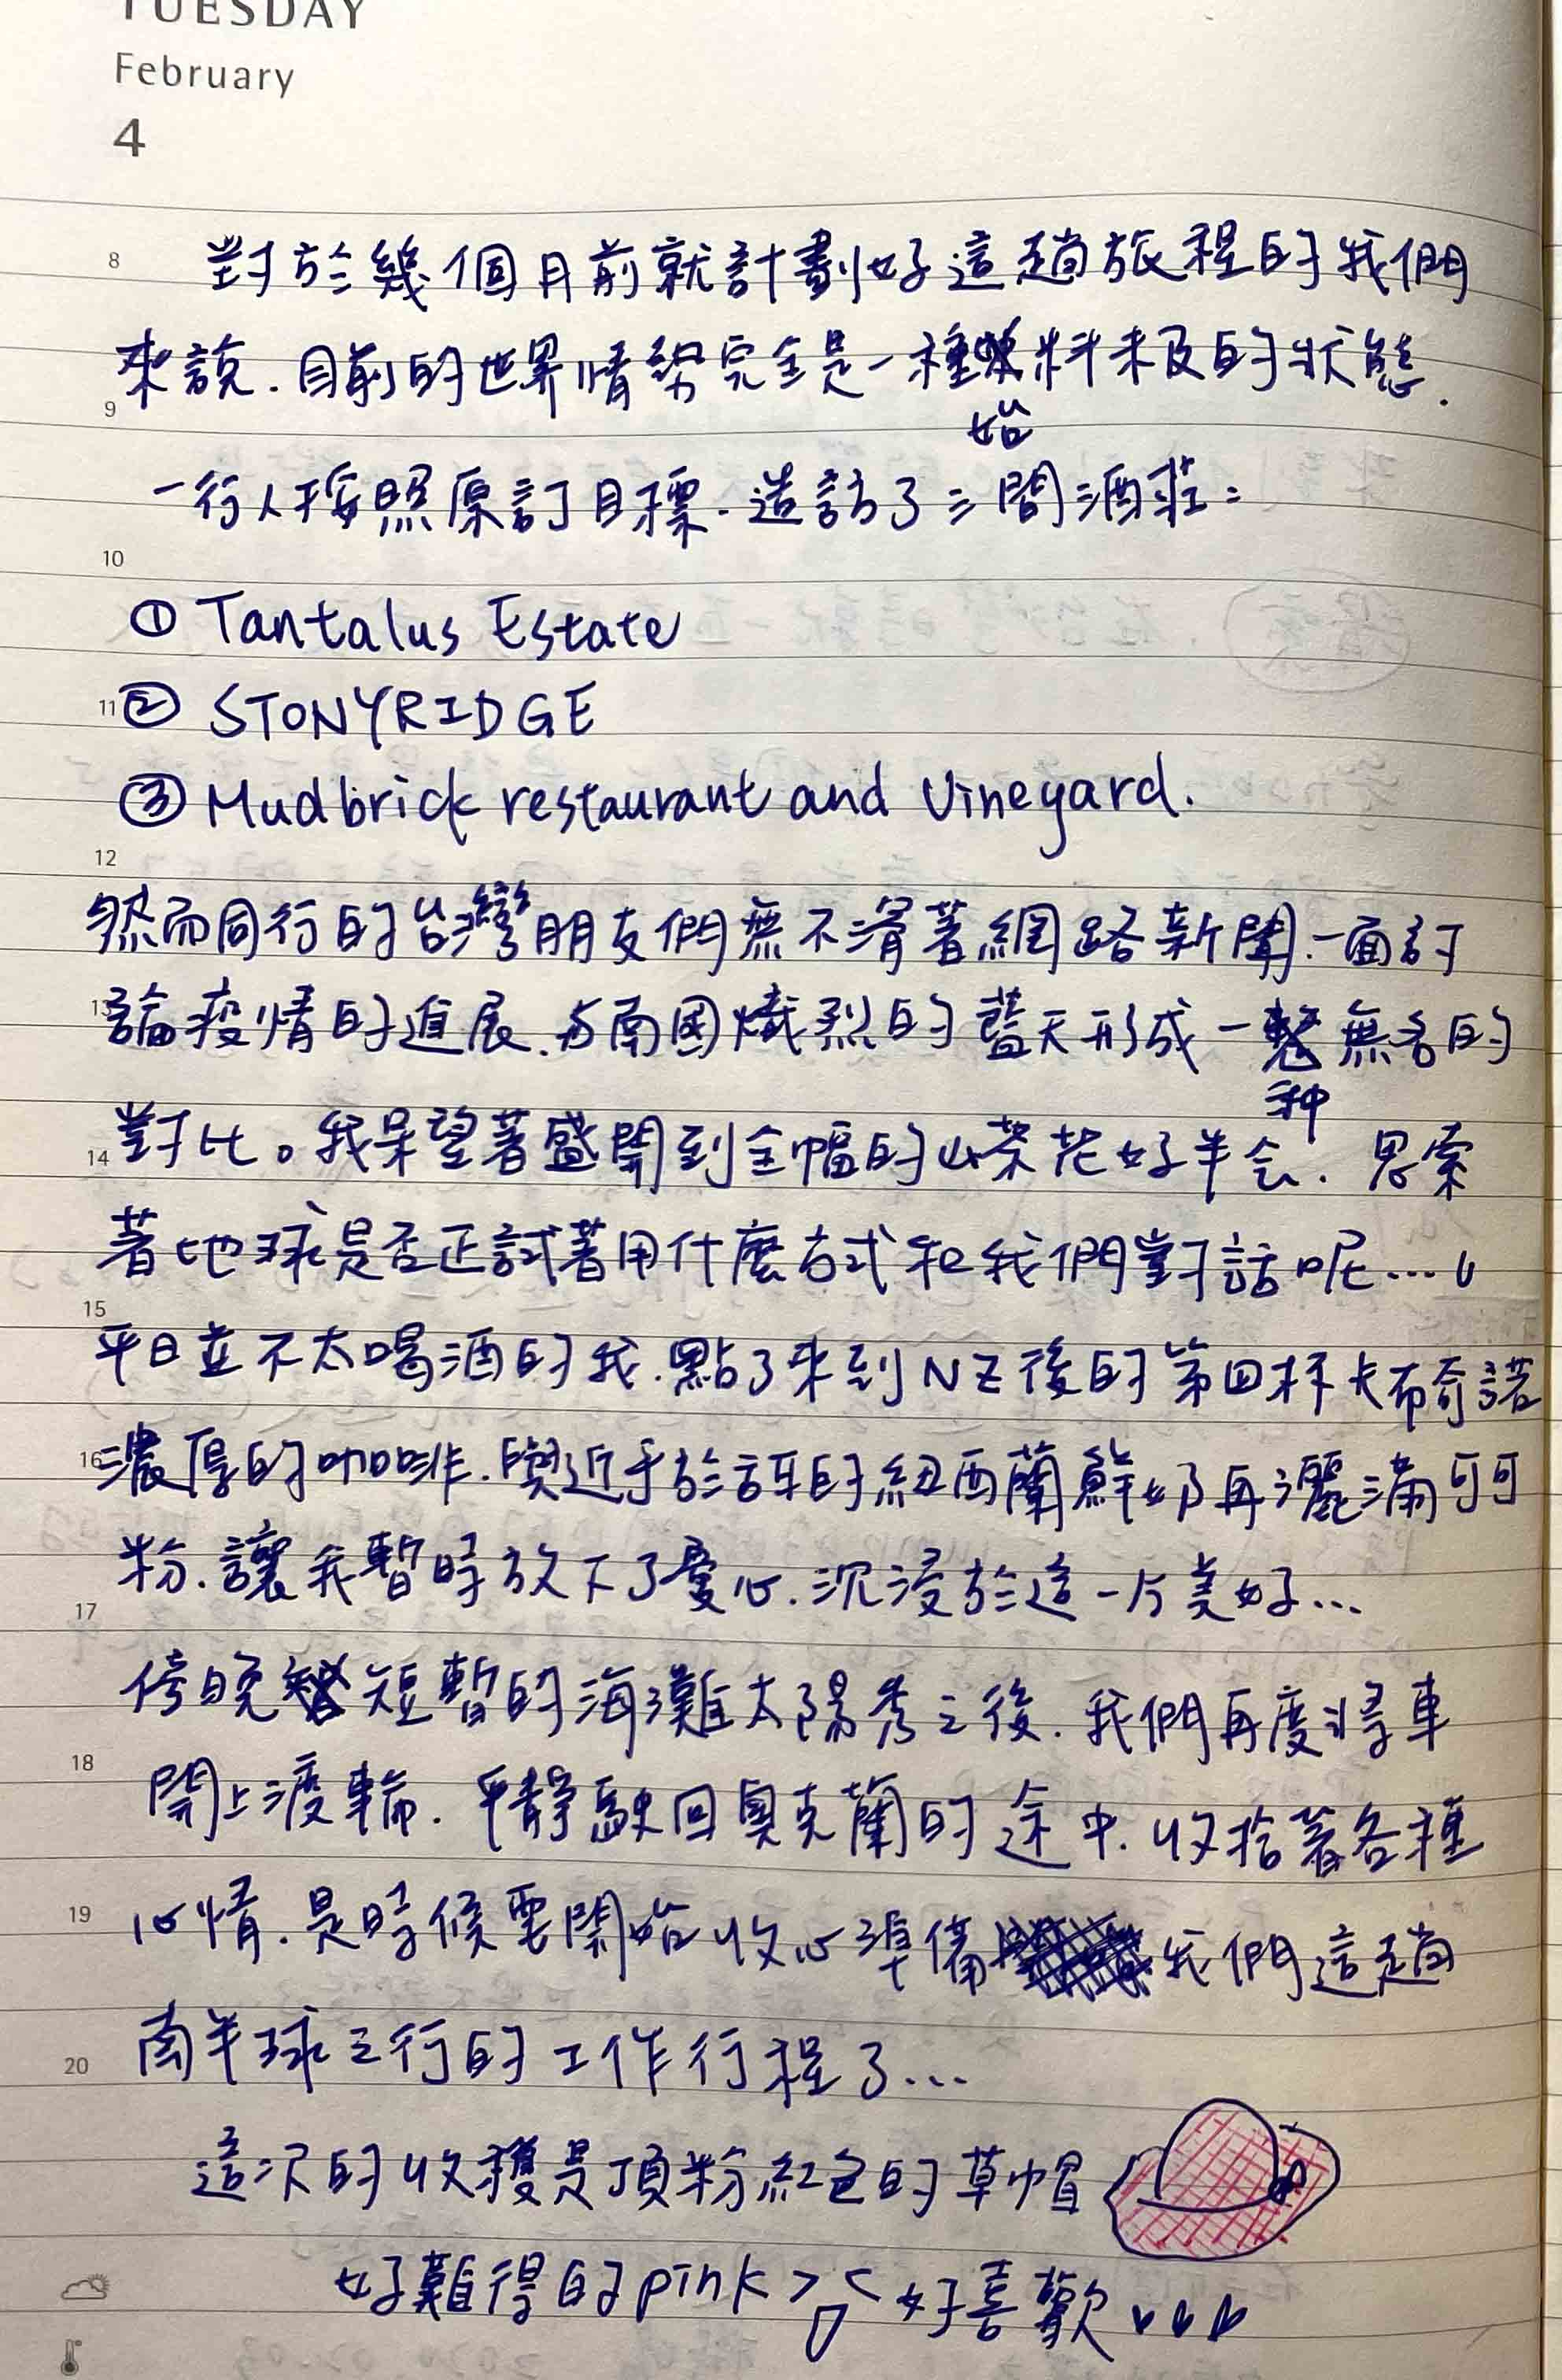 TUESDAY
February
4
8 對於幾個月前就計劃好這趟旅程的我們
來說.目前的世界情勢完全是一種始料未及的狀態.
9
一行人按照原訂目標.造訪了三間酒莊:
10
① Tantalus Estate
11 ② STONYRIDGE
③ Mudbrick restaurant and Vineyard.
12
然而同行的台灣朋友們無不滑著網路新聞.一面討
13 論疫情的進展.与南國熾烈的藍天形成一种無名的
14 對比。我呆望著盛開到全幅的山茶花好半会.思索
著地球是否正試著用什麼方式和我們對話呢...
15
平日並不太喝酒的我.點了來到NZ後的第四杯卡布奇諾
16 濃厚的咖啡.與近乎於詩的紐西蘭鮮奶再灑滿可可
粉.讓我暫時放下了憂心.沉浸於這一片美好...
17
傍晚短暫的海灘太陽秀之後.我們再度將車
18 開上渡輪.平靜駛回奧克蘭的途中.收拾著各種
19 心情.是時候要開始收心準備我們這趟
20 南半球之行的工作行程了...
這次的收穫是頂粉紅色的草帽
好難得的pink >▽< 好喜歡